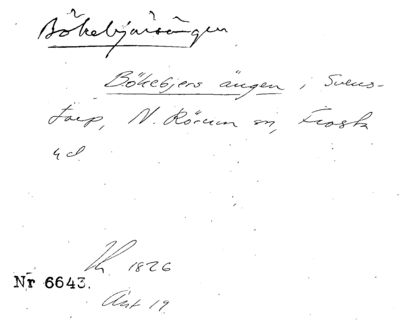 Bökebjärsängen
Bökebjers ängen i Svens-
torp, N. Rörum sn, Frosta
hd.
1826
Nr 6643.
Akt 19.